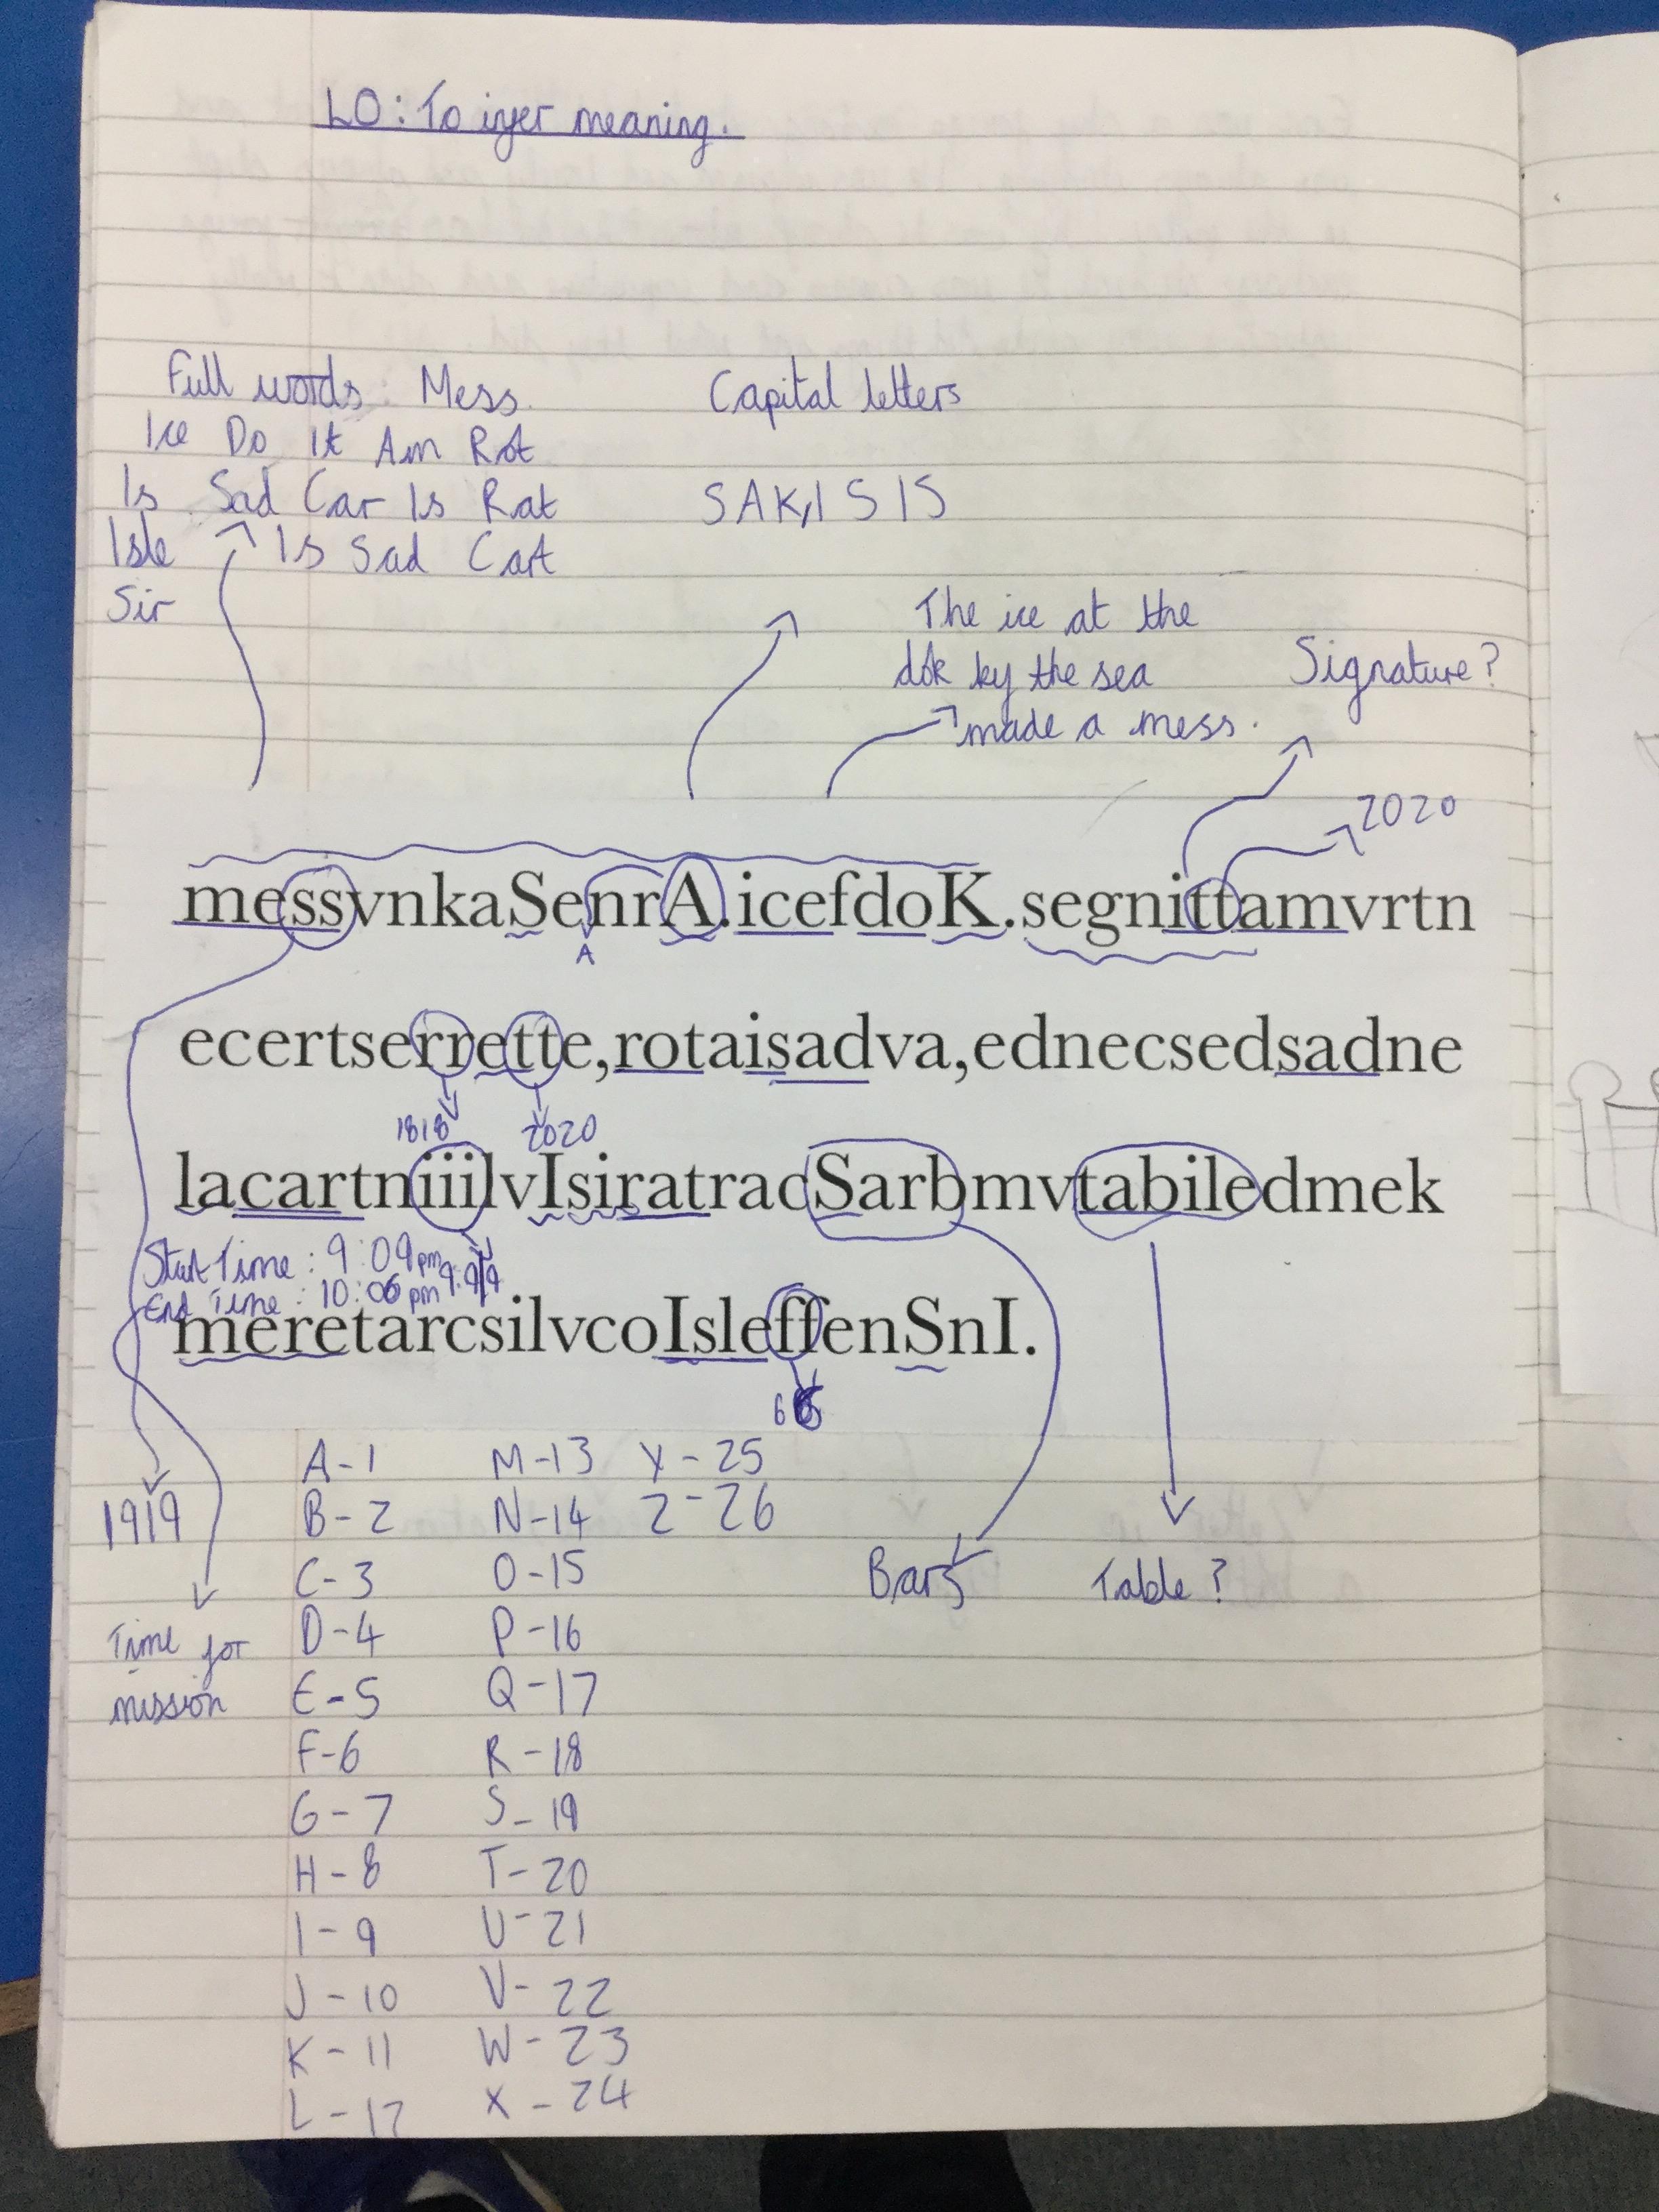 LO: To infer meaning.
Full words: Mess
Ice Do It Am Rot
Is Sad Car Is Rat
Isle Is Sad Cart
Sir
Capital letters
SAK,ISIS
The ice at the
dok by the sea
made a mess.
Signature?
2020
messvnkaSenrA.icefdoK.segnittamvrtn
A
ecertserrette,rotaisadva,ednecsedsadne
1818
2020
lacartniiilvIsiratracSarbmvtabiledmek
Start Time: 9:09pm
End Time: 10:06pm
meretarcsilvcoIsleffenSnI.
1919
Time for
mission
A-1
B-2
C-3
D-4
E-5
F-6
G-7
H-8
I-9
J-10
K-11
L-12
M-13
N-14
O-15
P-16
Q-17
R-18
S-19
T-20
U-21
V-22
W-23
X-24
Y-25
Z-26
Bars
Table?